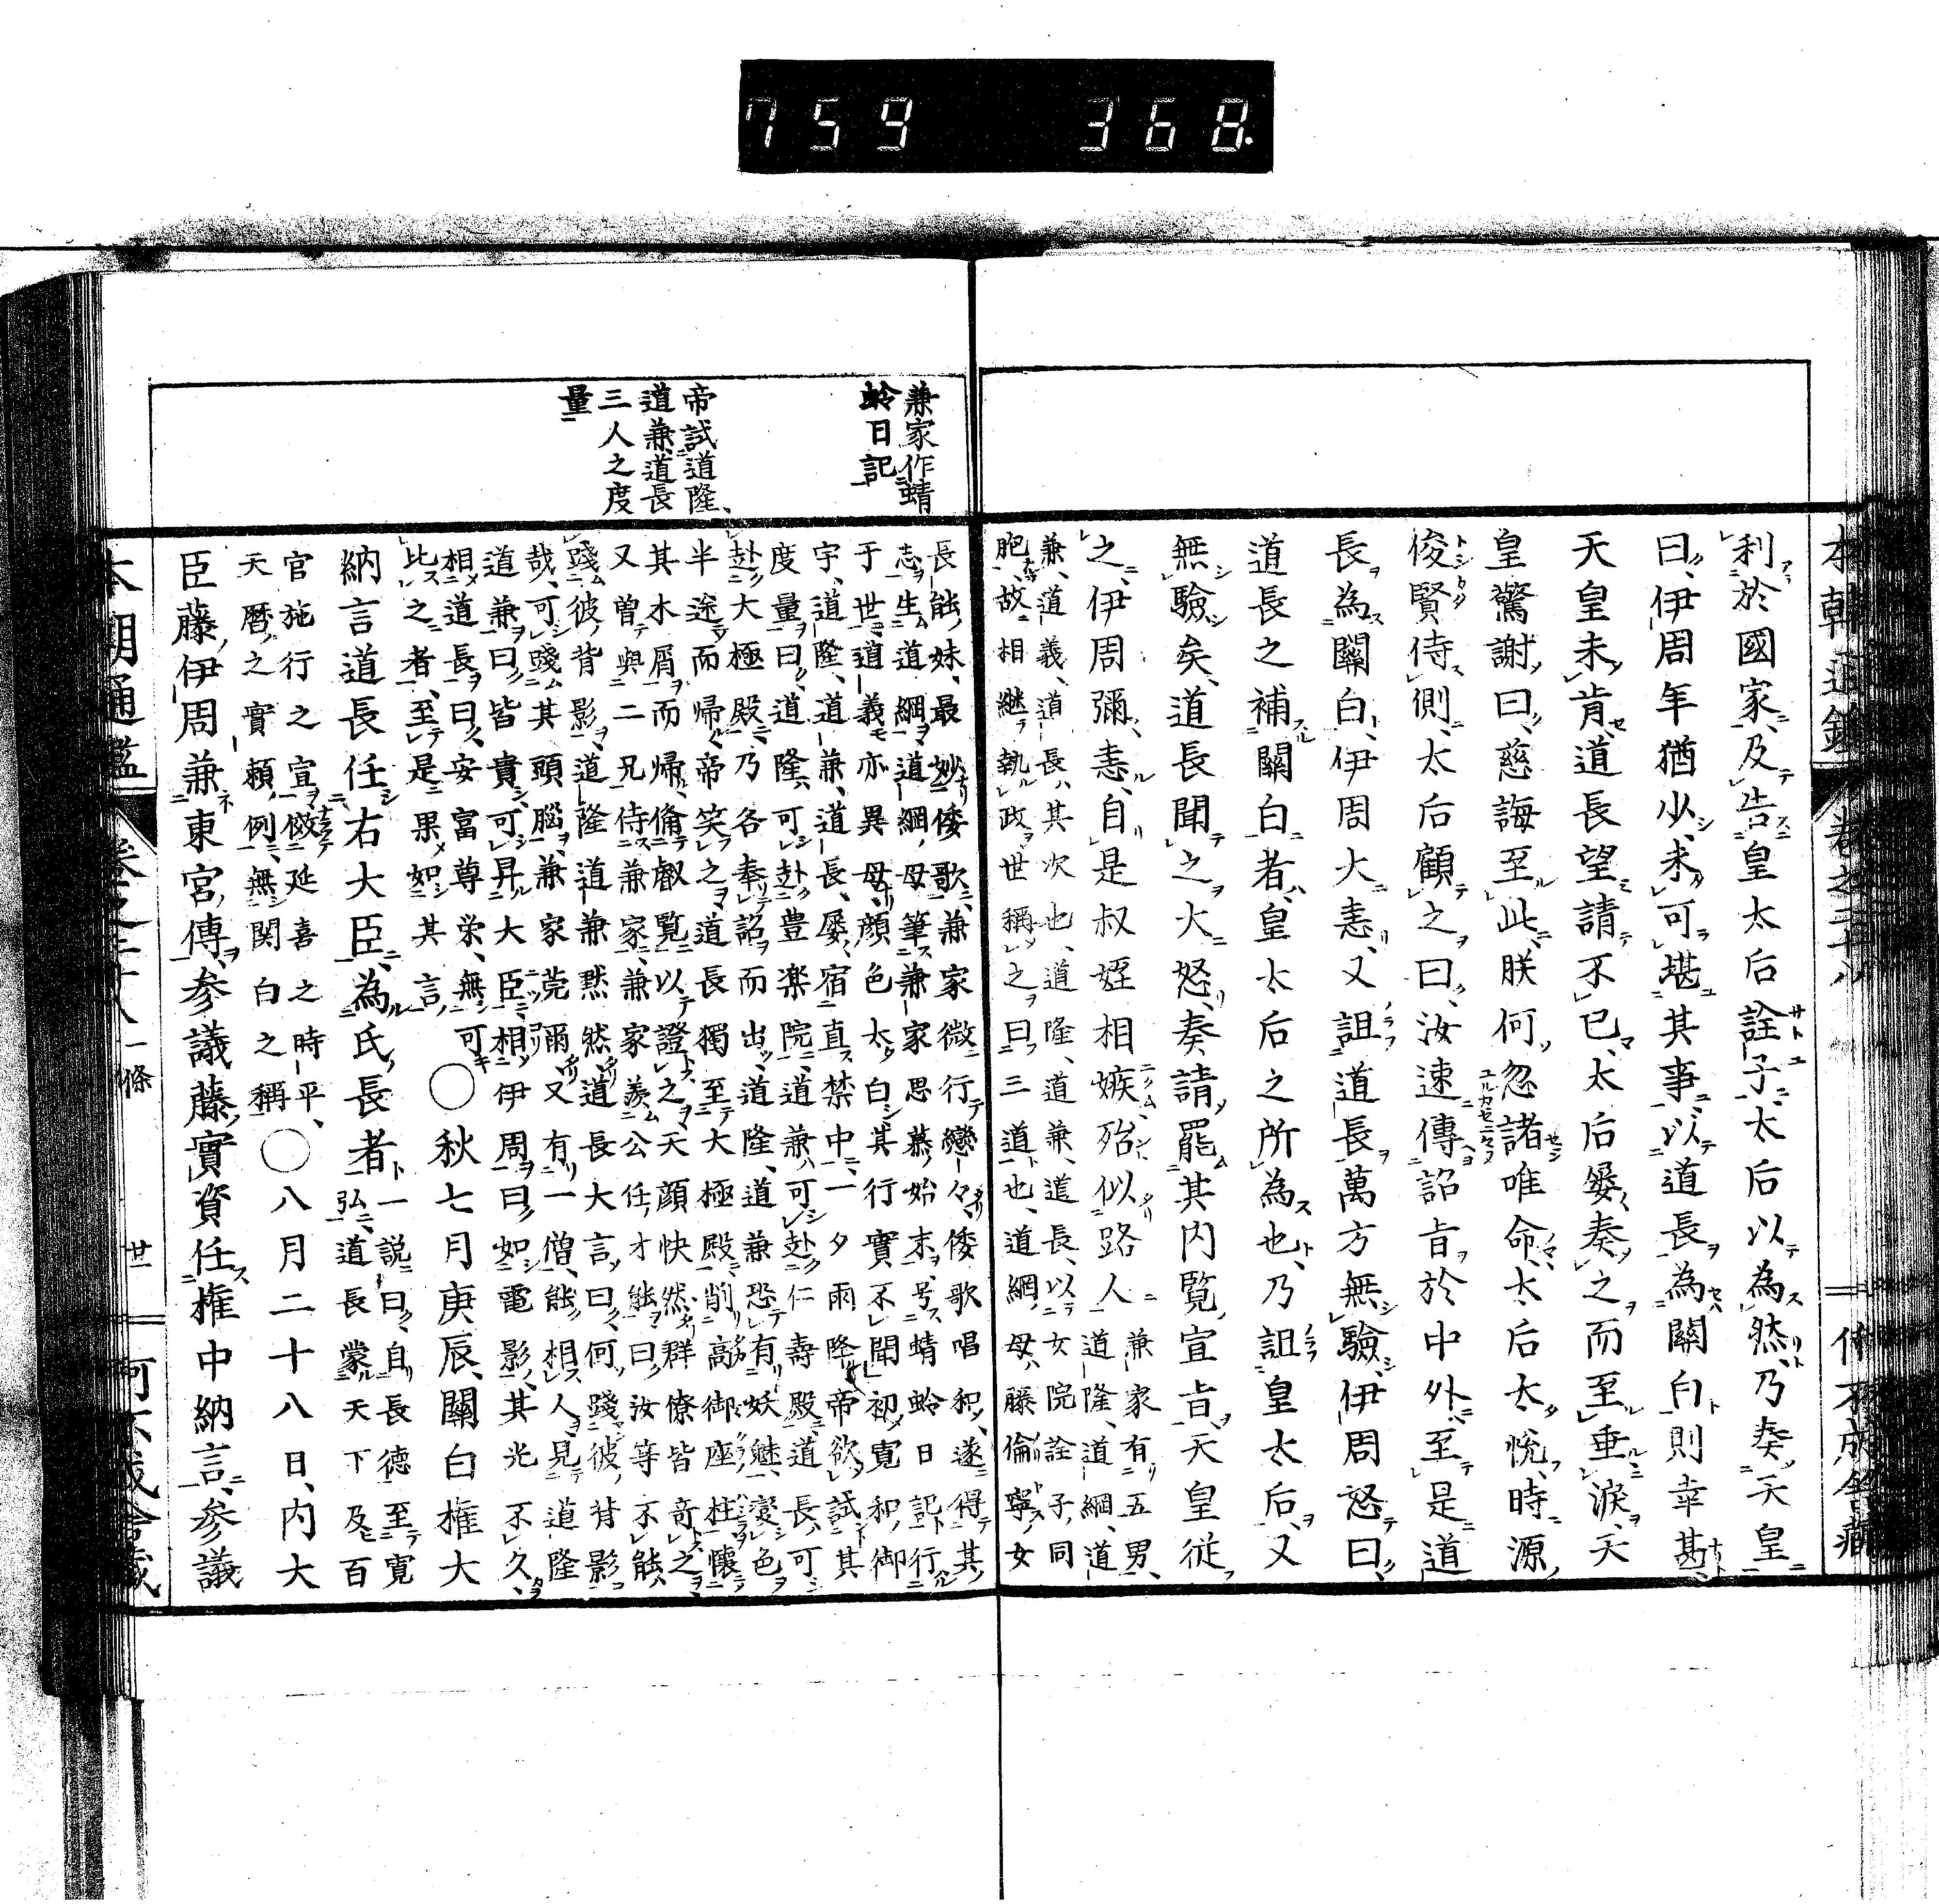 759 368.
利於國家、及告皇太后詮子、太后以為然、乃奏天皇
曰、伊周年猶少、未可堪其事、以道長為關白、則幸甚、
天皇未肯、道長望請不已、太后屡奏之而至垂涙、天
皇驚謝曰、慈誨至此、朕何忽諸、唯命、太后太悅、時源
俊賢侍側、太后顧之曰、汝速傳詔旨於中外、至是道
長為關白、伊周大恚、又詛道長萬方無驗、伊周怒曰、
道長之補關白者、皇太后之所為也、乃詛皇太后、又
無驗矣、道長聞之大怒、奏請罷其內覧宣旨、天皇從
之、伊周彌恚、自是叔姪相嫉、殆似路人
兼家有五男、道隆、道綱、道
兼、道義、道長、其次也、道隆、道兼、道長、以女院詮子、同
胞、故相継執政、世稱之曰三道也、道綱母、藤倫寧女
兼家作蜻
蛉日記
帝試道隆、
道兼道長
三人之度
量
長能妹、最妙倭歌、兼家微行戀々、倭歌唱和、遂得其
志、生道綱、道綱母筆兼家思慕始末、号蜻蛉日記、行
于世、道義亦異母、顔色太白、其行實不聞、初寛和御
宇、道隆、道兼、道長、屡宿直禁中、一夕雨隆、帝欲試其
度量曰、道隆可赴豊楽院、道兼可赴仁壽殿、道長可
赴大極殿、乃各奉詔而出、道隆、道兼恐有妖魅、変色
半途而帰、帝笑之、道長獨至大極殿、削高御座柱、懐
其木屑而帰、備叡覧以證之、天顔快然、群僚皆奇之、
又曽與二兄侍兼家、兼家羨公任才能曰、汝等不能
踐彼背影、道隆道兼黙然、道長大言曰、何踐彼背影
哉、可踐其頭腦、兼家莞爾、又有一僧、能相人、見道隆
道兼曰、皆貴、可昇大臣、相伊周曰、如電影、其光不久、
相道長曰、安富尊栄、無可
比之者、至是果如其言、
○秋七月庚辰、關白權大
納言道長任右大臣、為氏長者
一説曰、自長徳至寛
弘、道長蒙天下及百
官施行之宣、傚延喜之時平、
天暦之實頼例、無関白之稱
○八月二十八日、內大
臣藤伊周兼東宮傳、参議藤實資任權中納言、参議